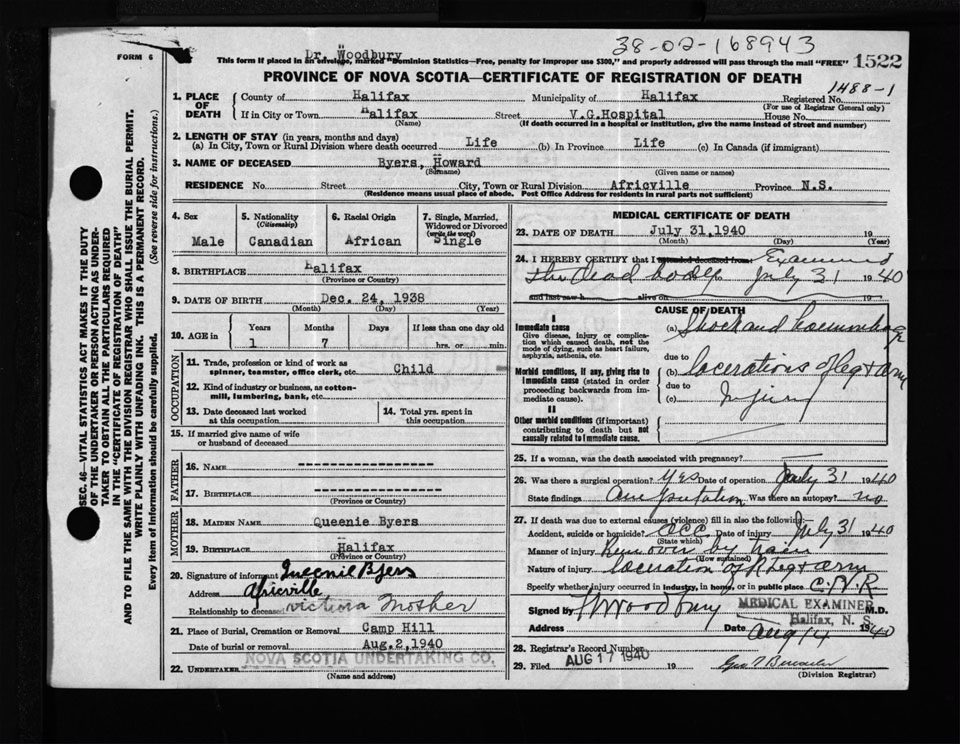 38-02-168943
FORM 6
Dr. Woodbury
This form if placed in an envelope, marked "Dominion Statistics—Free, penalty for improper use $300," and properly addressed will pass through the mail "FREE"
1522
PROVINCE OF NOVA SCOTIA—CERTIFICATE OF REGISTRATION OF DEATH
1488-1
1. PLACE OF DEATH
County of Halifax Municipality of Halifax Registered No.
(For use of Registrar General only)
If in City or Town Halifax Street V.G.Hospital House No.
(Name) (If death occurred in a hospital or institution, give the name instead of street and number)
2. LENGTH OF STAY (in years, months and days)
(a) In City, Town or Rural Division where death occurred Life (b) In Province Life (c) In Canada (if immigrant)
3. NAME OF DECEASED Byers, Howard
(Surname) (Given name or names)
RESIDENCE No. Street City, Town or Rural Division Africville Province N.S.
(Residence means usual place of abode. Post Office Address for residents in rural parts not sufficient)
4. Sex Male
5. Nationality (Citizenship) Canadian
6. Racial Origin African
7. Single, Married, Widowed or Divorced (write the word) Single
8. BIRTHPLACE Halifax
(Province or Country)
9. DATE OF BIRTH Dec. 24, 1938
(Month) (Day) (Year)
10. AGE in Years Months Days If less than one day old
1 7 hrs. or min.
OCCUPATION
11. Trade, profession or kind of work as spinner, teamster, office clerk, etc. Child
12. Kind of industry or business, as cotton-mill, lumbering, bank, etc.
13. Date deceased last worked at this occupation
14. Total yrs. spent in this occupation
15. If married give name of wife or husband of deceased
FATHER
16. NAME ----------------
17. BIRTHPLACE ---------------
(Province or Country)
MOTHER
18. MAIDEN NAME Queenie Byers
19. BIRTHPLACE Halifax
(Province or Country)
20. Signature of informant Queenie Byers
Address Africville
Relationship to deceased victim's Mother
21. Place of Burial, Cremation or Removal Camp Hill
Date of burial or removal Aug.2,1940
22. UNDERTAKER NOVA SCOTIA UNDERTAKING CO.
(Name and address)
MEDICAL CERTIFICATE OF DEATH
23. DATE OF DEATH July 31,1940 19
(Month) (Day) (Year)
24. I HEREBY CERTIFY that I attended deceased from: Examined
the dead body July 31 1940
and last saw h alive on 19
CAUSE OF DEATH
I
Immediate cause
Give disease, injury or complication which caused death, not the mode of dying, such as heart failure, asphyxia, asthenia, etc.
(a) Shock and haemorrhage
due to
Morbid conditions, if any, giving rise to immediate cause (stated in order proceeding backwards from immediate cause).
(b) lacerations of leg & arm
due to
(c) Injury
II
Other morbid conditions (if important) contributing to death but not causally related to immediate cause.
25. If a woman, was the death associated with pregnancy?
26. Was there a surgical operation? Yes Date of operation July 31 1940
State findings Amputation Was there an autopsy? no
27. If death was due to external causes (violence) fill in also the following:
Accident, suicide or homicide? Acc. Date of injury July 31 1940
(State which)
Manner of injury Run over by train
(How sustained)
Nature of injury laceration of R leg & arm
Specify whether injury occurred in industry, in home, or in public place C.N.R
Signed by H Woodbury MEDICAL EXAMINER M.D.
Halifax, N. S.
Address Date Aug 14 1940
28. Registrar's Record Number
29. Filed AUG 17 1940 19
(Division Registrar)
SEC. 46—VITAL STATISTICS ACT MAKES IT THE DUTY
OF THE UNDERTAKER OR PERSON ACTING AS UNDER-
TAKER TO OBTAIN ALL THE PARTICULARS REQUIRED
IN THE "CERTIFICATE OF REGISTRATION OF DEATH"
AND TO FILE THE SAME WITH THE DIVISION REGISTRAR WHO SHALL ISSUE THE BURIAL PERMIT.
WRITE PLAINLY WITH UNFADING INK. THIS IS A PERMANENT RECORD.
Every item of information should be carefully supplied. (See reverse side for instructions.)